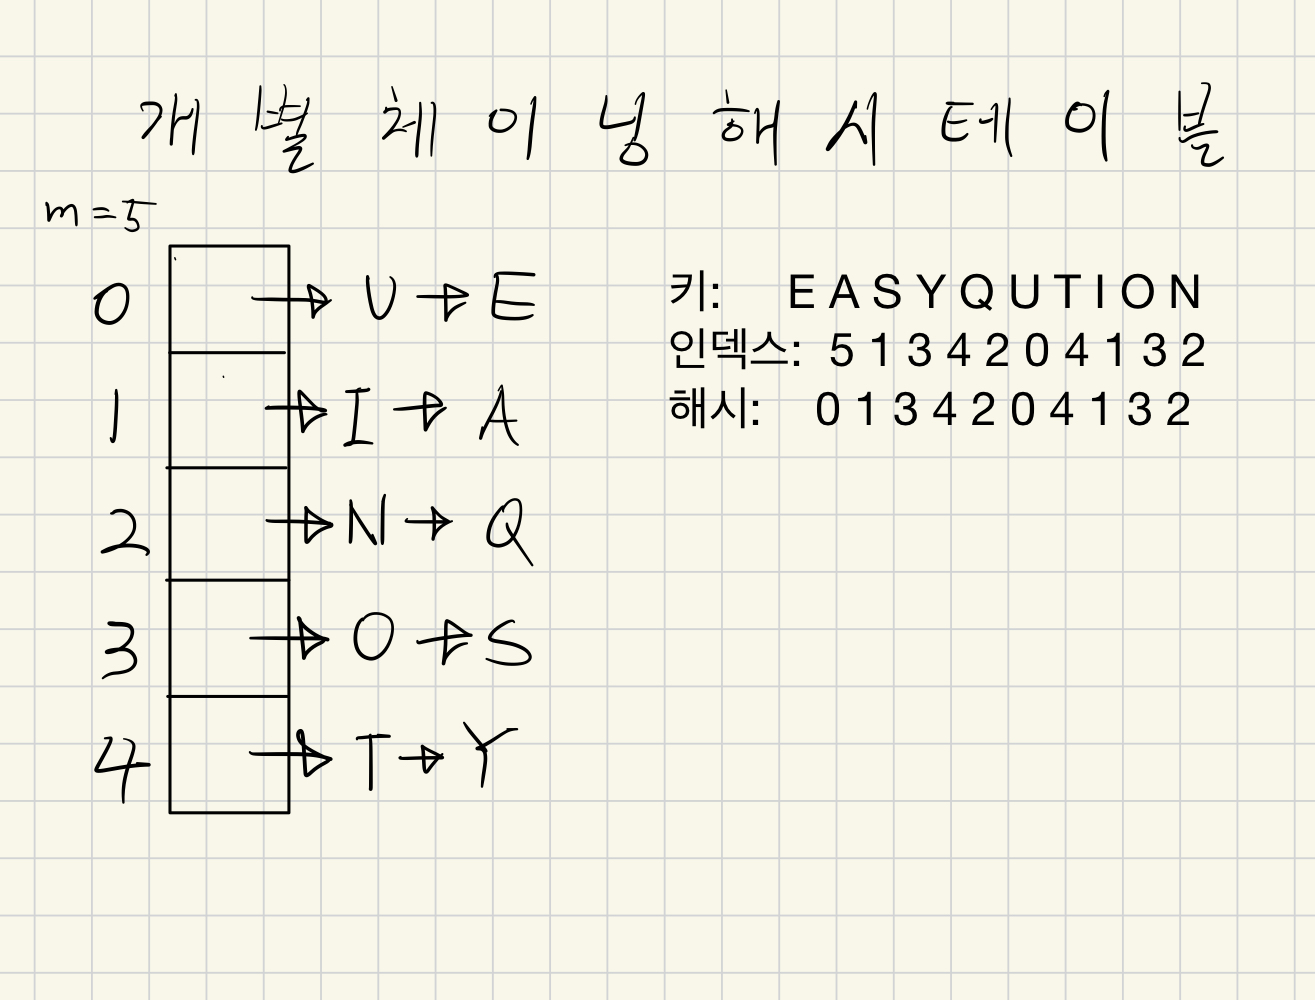 개별체이닝해시테이블
m=5
0 → U → E
1 → I → A
2 → N → Q
3 → O → S
4 → T → Y
키: E A S Y Q U T I O N
인덱스: 5 1 3 4 2 0 4 1 3 2
해시: 0 1 3 4 2 0 4 1 3 2